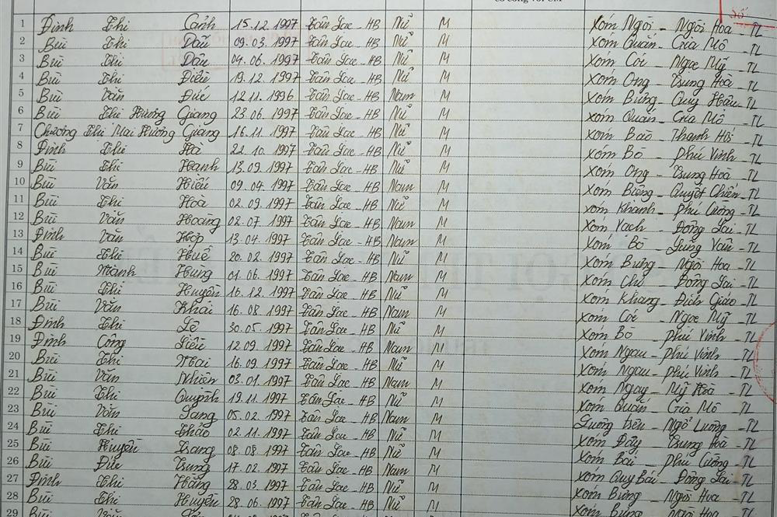 1 Đinh Thị Cảnh 15.12.1997 Tân Lạc - HB Nữ M Xóm Ngòi - Ngòi Hoa - TL
2 Bùi Thị Dấu 09.03.1997 Tân Lạc - HB Nữ M Xóm Quắn - Gia Mô - TL
3 Bùi Thị Dấu 04.06.1997 Tân Lạc - HB Nữ M Xóm Cói - Ngọc Mỹ - TL
4 Bùi Thị Điều 19.12.1997 Tân Lạc - HB Nữ M Xóm Ong - Trung Hoà - TL
5 Bùi Văn Đức 12.11.1996 Tân Lạc - HB Nam M Xóm Bưng - Quy Hậu - TL
6 Bùi Thị Hương Giang 23.06.1997 Tân Lạc - HB Nữ M Xóm Quắn - Gia Mô - TL
7 Chương Thị Mai Hương Giang 16.11.1997 Tân Lạc - HB Nữ M Xóm Bào - Thanh Hối - TL
8 Đinh Thị Hà 22.10.1997 Tân Lạc - HB Nữ M Xóm Bò - Phú Vinh - TL
9 Bùi Thị Hạnh 13.09.1997 Tân Lạc - HB Nữ M Xóm Ong - Trung Hoà - TL
10 Bùi Văn Hiếu 09.04.1997 Tân Lạc - HB Nam M Xóm Biêng - Quyết Chiến - TL
11 Bùi Thị Hoà 02.09.1997 Tân Lạc - HB Nữ M Xóm Khanh - Phú Cường - TL
12 Bùi Văn Hoàng 02.07.1997 Tân Lạc - HB Nam M Xóm Vạch - Đông Lai - TL
13 Đinh Văn Hợp 13.04.1997 Tân Lạc - HB Nam M Xóm Bò - Lũng Vân - TL
14 Bùi Thị Huế 20.02.1997 Tân Lạc - HB Nữ M Xóm Bưng - Ngòi Hoa - TL
15 Bùi Mạnh Hùng 01.06.1997 Tân Lạc - HB Nam M Xóm Chù - Đông Lai - TL
16 Bùi Thị Huyền 16.12.1997 Tân Lạc - HB Nữ M Xóm Khang - Địch Giáo - TL
17 Bùi Văn Khải 16.08.1997 Tân Lạc - HB Nam M Xóm Cói - Ngọc Mỹ - TL
18 Đinh Thị Lệ 30.05.1997 Tân Lạc - HB Nữ M Xóm Bò - Phú Vinh - TL
19 Đinh Công 12.09.1997 Tân Lạc - HB Nam M Xóm Ngau - Phú Vinh - TL
20 Bùi Thị Mai 16.09.1997 Tân Lạc - HB Nữ M Xóm Ngau - Phú Vinh - TL
21 Bùi Văn Nhiên 03.01.1997 Tân Lạc - HB Nam M Xóm Ngay - Mỹ Hoà - TL
22 Bùi Thị Quỳnh 19.11.1997 Tân Lạc - HB Nữ M Xóm Quắn - Gia Mô - TL
23 Bùi Văn Sang 05.02.1997 Tân Lạc - HB Nam M Ngổ Luông - TL
24 Bùi Thị Thảo 02.11.1997 Tân Lạc - HB Nữ M Xóm Đầy - Trung Hoà - TL
25 Bùi Huyền Trang 08.08.1997 Tân Lạc - HB Nữ M Xóm Bái - Phú Cường - TL
26 Bùi Đức Trung 17.02.1997 Tân Lạc - HB Nam M Xóm Quy Bái - Đông Lai - TL
27 Đinh Thị Hằng 28.03.1997 Tân Lạc - HB Nữ M Xóm Bưng - Ngòi Hoa - TL
28 Bùi Thị Huyền 28.06.1997 Tân Lạc - HB Nữ M Xóm Bưng - Ngòi Hoa - TL
29 Bùi Văn